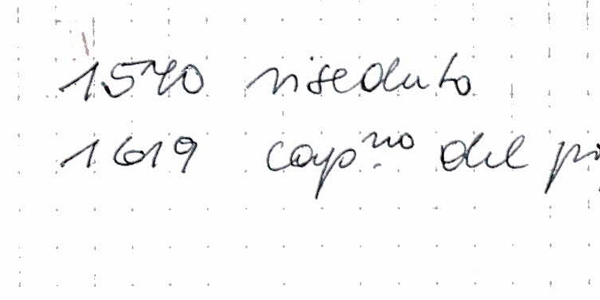 1540 riseduto
1619 cap.no del